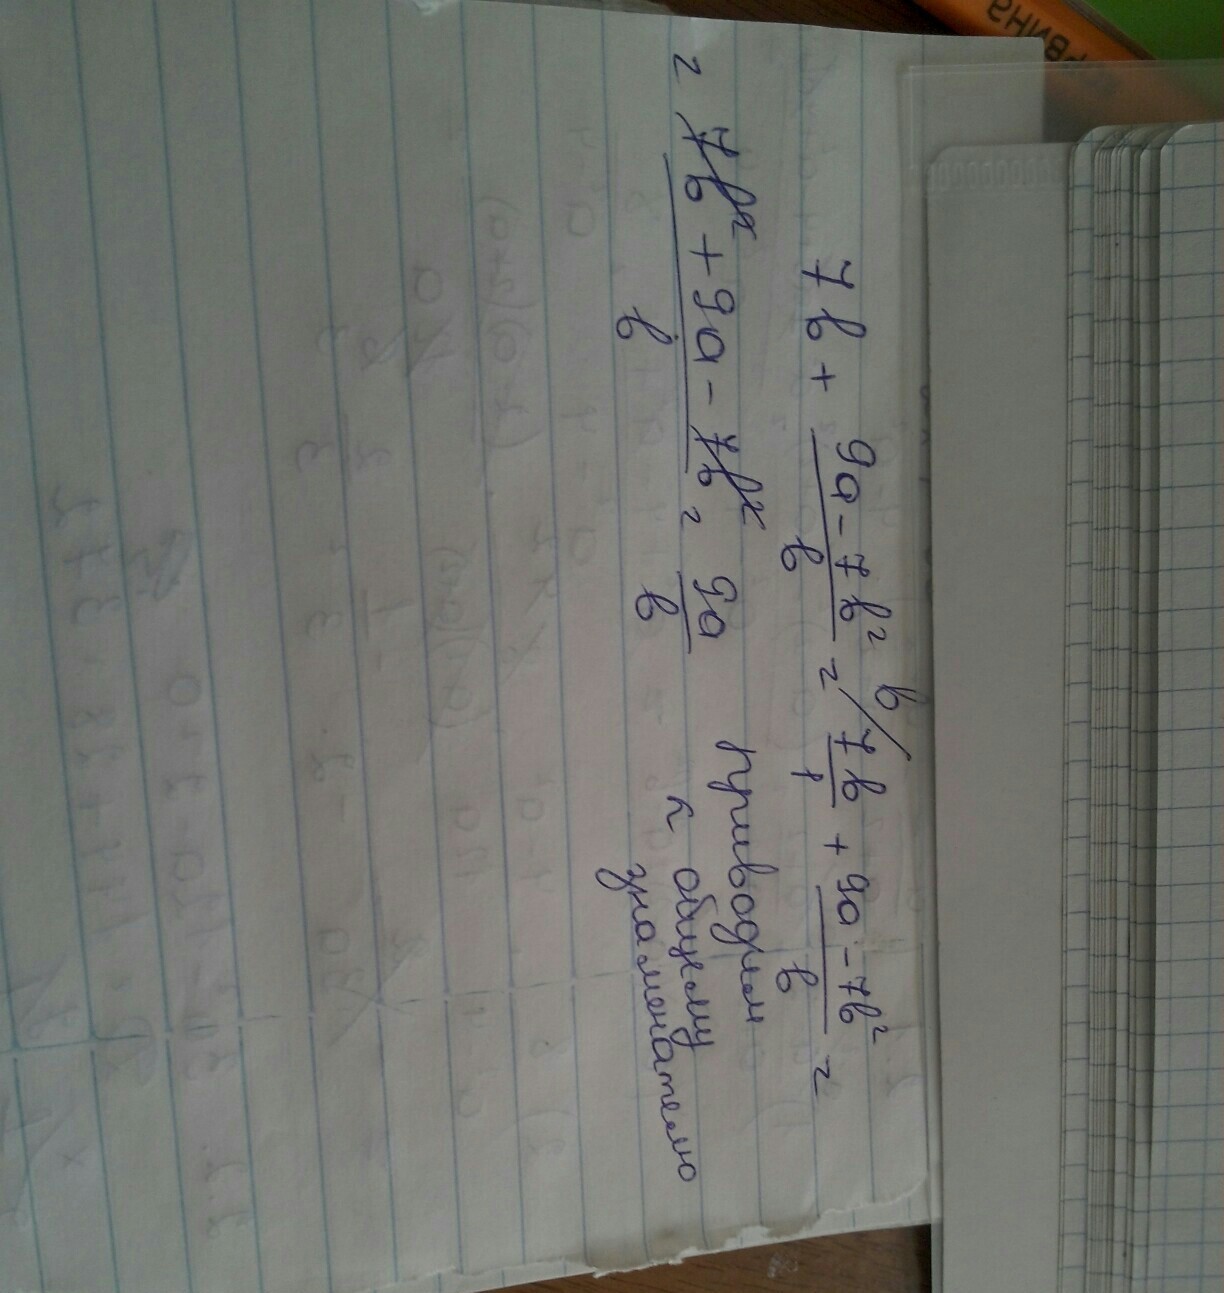 7b + (9a - 7b²)/b = 7b/1 \b + (9a - 7b²)/b =
= (7b² + 9a - 7b²)/b = 9a/b
приводим
к общему
знаменателю